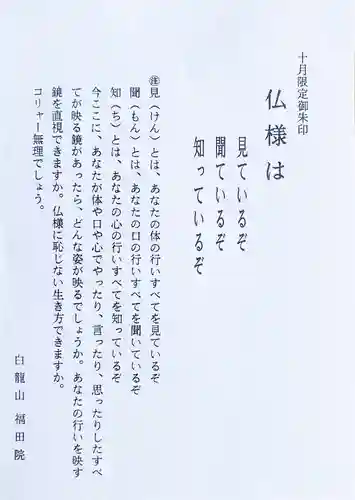 十月限定御朱印
仏様は
見ているぞ
聞ているぞ
知っているぞ
㊟見（けん）とは、あなたの体の行いすべてを見ているぞ
聞（もん）とは、あなたの口の行いすべてを聞いているぞ
知（ち）とは、あなたの心の行いすべてを知っているぞ
今ここに、あなたが体や口や心でやったり、言ったり、思ったりしたすべ
てが映る鏡があったら、どんな姿が映るでしょうか。あなたの行いを映す
鏡を直視できますか。仏様に恥じない生き方できますか。
コリャー無理でしょう。
白龍山 福田院